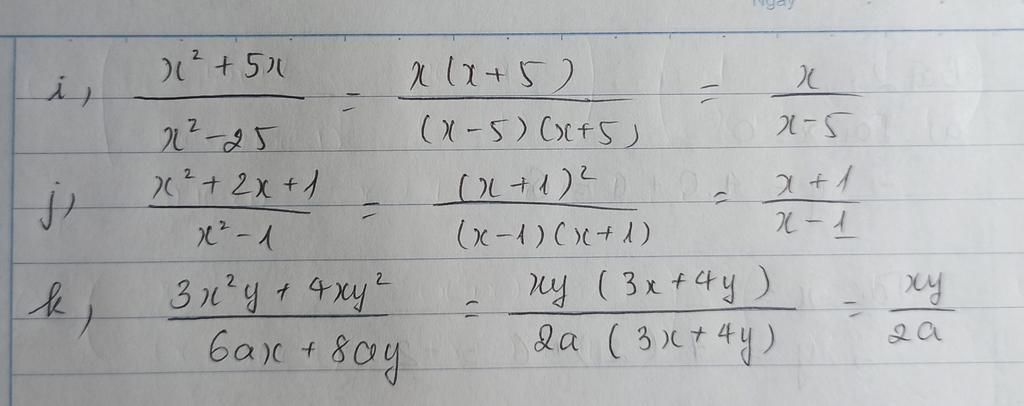 Ngày
i, (x² + 5x)/(x² - 25) = x(x + 5)/((x - 5)(x + 5)) = x/(x - 5)
j, (x² + 2x + 1)/(x² - 1) = (x + 1)²/((x - 1)(x + 1)) = (x + 1)/(x - 1)
k, (3x²y + 4xy²)/(6ax + 8ay) = xy(3x + 4y)/(2a(3x + 4y)) = xy/2a